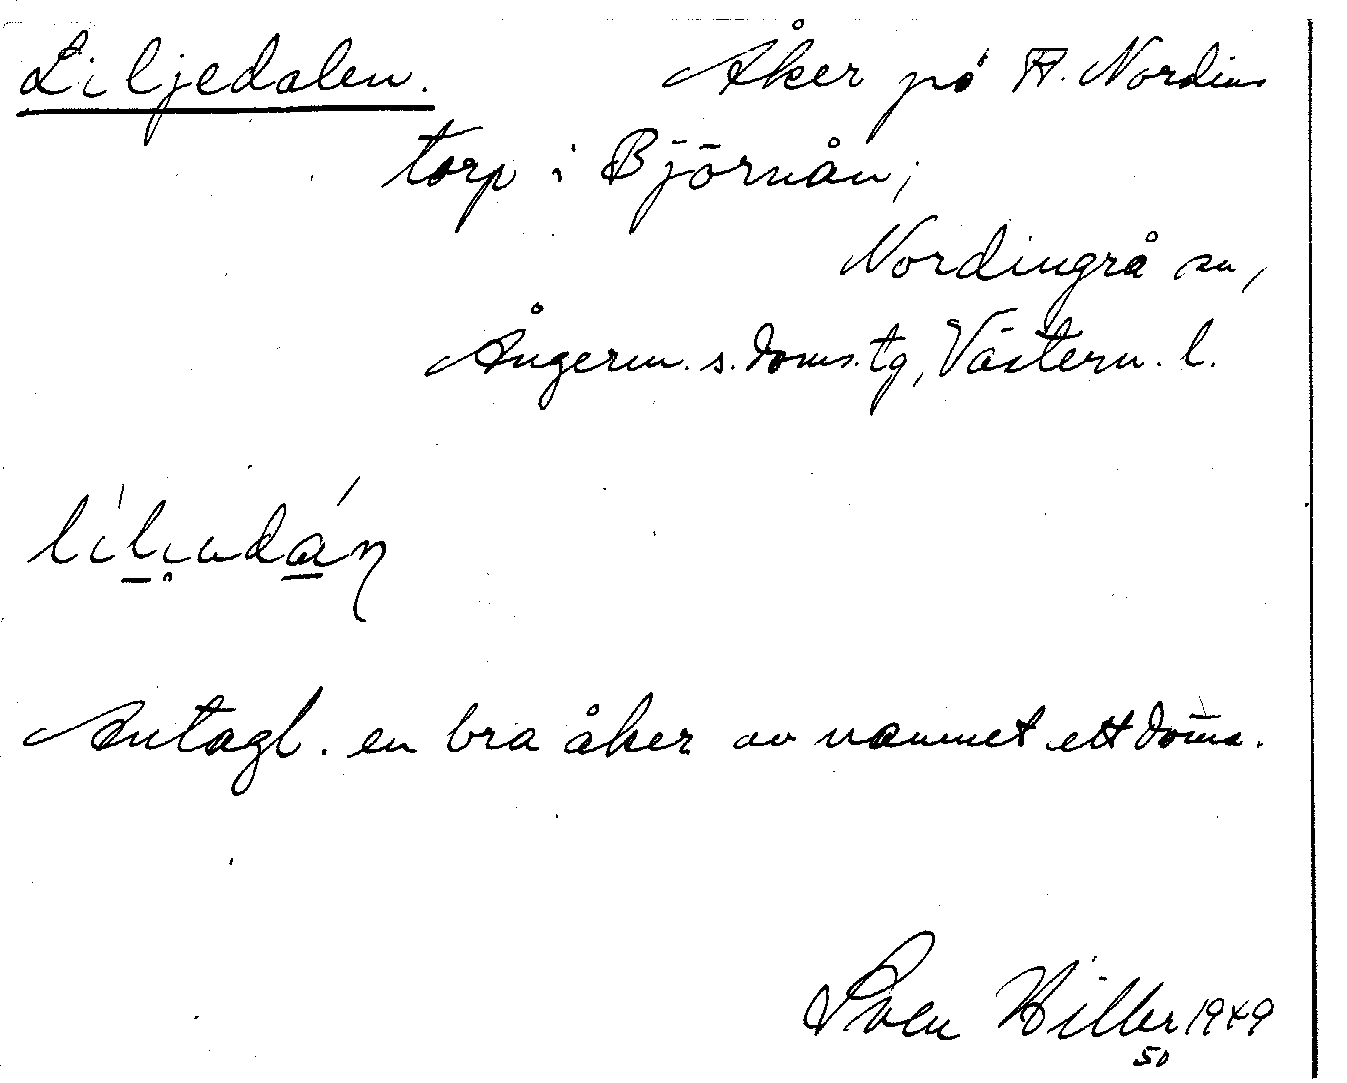 Liljedalen. Åker på A. Nordins
torp i Björnån,
Nordingrå sn,
Ångerm. s. doms. tg, Västern. l.
Antagl. en bra åker av namnet att döma.
Sven Hiller 1949
50